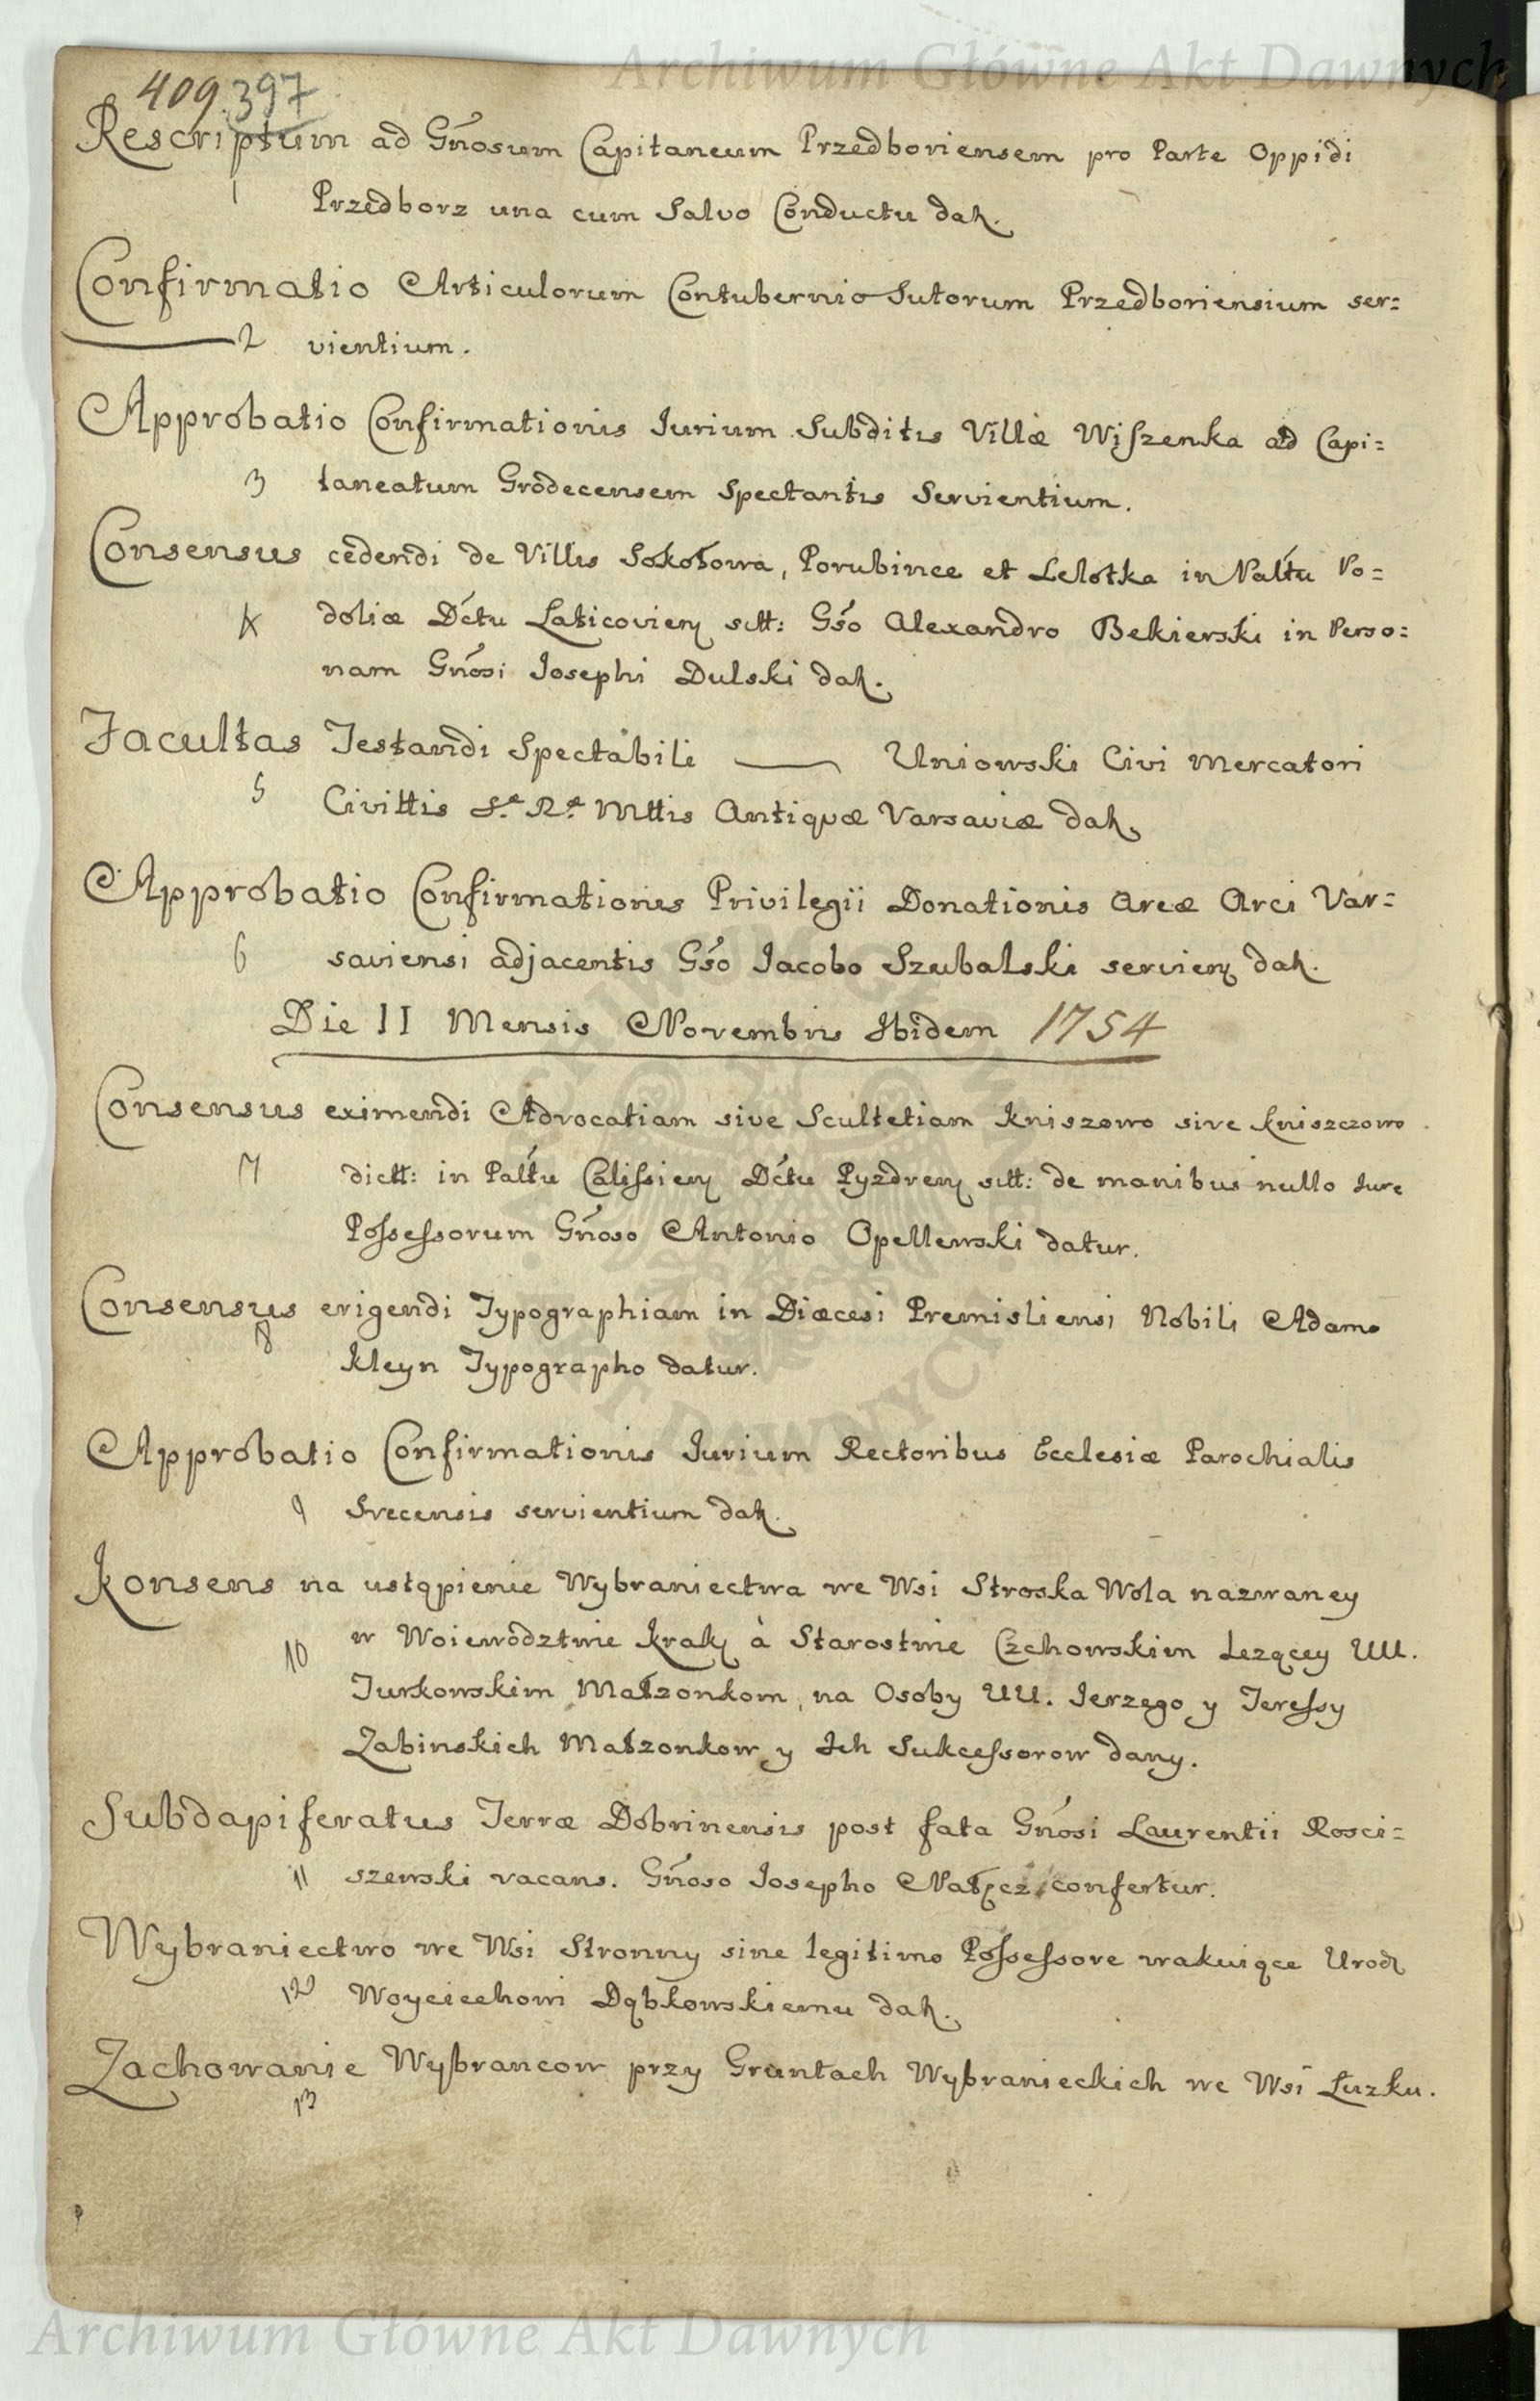 Archiwum Główne Akt Dawnych
409. 397
Rescriptum ad Gñosum Capitaneum Przedboriensem pro Parte Oppidi
1 Przedborz una cum Salvo Conductu dat.
Confirmatio Articulorum Contubernio Sutorum Przedboriensium ser=
2 vientium.
Approbatio Confirmationis Jurium Subditis Villæ Wiszenka ad Capi=
3 taneatum Grodecensem Spectantis Servientium.
Consensus cedendi de Villis Sokołowa, Porubince et Lelotka in Paltu Po=
4 doliæ Dctu Laticovien sitt: Gso Alexandro Bekierski in Perso=
nam Gnosi Josephi Dulski dat.
Facultas Testandi Spectabili — Uniowski Civi Mercatori
5 Civittis S.æ R.æ Mttis Antiquæ Varsaviæ dat.
Approbatio Confirmationis Privilegii Donationis Areæ Arci Var=
6 saviensi adjacentis Gso Jacobo Szubalski servien dat.
Die 11 Mensis Novembris Ibidem 1754
Consensus eximendi Advocatiam sive Scultetiam Kniszowo sive Kniszczowo
7 dictt: in Paltu Calissien Dctu Pyzdren sitt: de manibus nullo Jure
Possessorum Gñoso Antonio Opellewski datur.
Consensus erigendi Typographiam in Diæcesi Premisliensi Nobili Adamo
8 Kleyn Typographo datur.
Approbatio Confirmationis Jurium Rectoribus Ecclesiæ Parochialis
9 Srecensis servientium dat.
Konsens na ustąpienie Wybraniectwa we Wsi Stroska Wola nazwaney
10 w Woiewodztwie Krak à Starostwie Czchowskim Lezącey UU.
Jurkowskim Małzonkom, na Osoby UU. Jerzego y Teressy
Zabinskich Małzonkow y Ich Sukcessorow dany.
Subdapiferatus Terræ Dobrinensis post fata Gnosi Laurentii Rosci=
11 szewski vacans. Gñoso Josepho Nałęcz confertur.
Wybraniectwo we Wsi Stronny sine legitimo Possessore wakuiące Urod
12 Woyciechowi Dąbkowskiemu dat.
Zachowanie Wybrancow przy Gruntach Wybranieckich we Wsi Łuzku.
13
Archiwum Główne Akt Dawnych